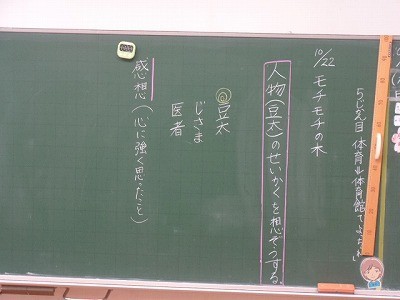 5じかん目 体育は体育館でよろしく
10/22 モチモチの木
人物(豆太)のせいかくを想ぞうする。
豆太
じさま
医者
感想(心に強く思ったこと)